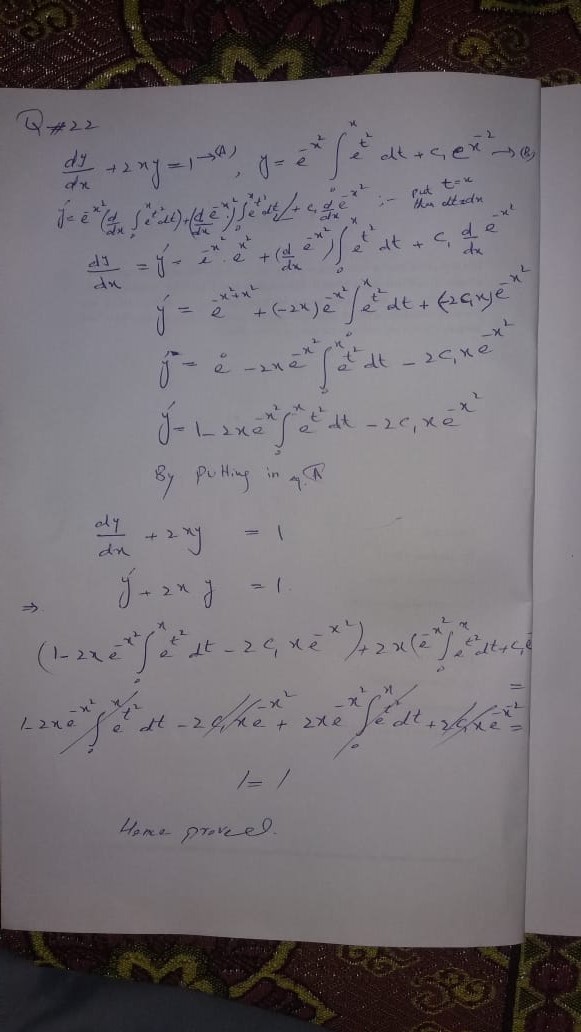 Q #22
dy/dx + 2xy = 1 → (A) , y = e^{-x^2} ∫_0^x e^{t^2} dt + c_1 e^{x^{-2}} → (B)
y' = e^{-x^2} (d/dx ∫_0^x e^{t^2} dt) + (d/dx e^{-x^2}) ∫_0^x e^{t^2} dt + c_1 d/dx e^{-x^2} ∵ put t = x
then dt = dx
dy/dx = y' = e^{-x^2} . e^{x^2} + (d/dx e^{-x^2}) ∫_0^x e^{t^2} dt + c_1 d/dx e^{-x^2}
y' = e^{-x^2+x^2} + (-2x) e^{-x^2} ∫_0^x e^{t^2} dt + (-2c_1x) e^{-x^2}
y' = e^0 - 2x e^{-x^2} ∫_0^x e^{t^2} dt - 2c_1 x e^{-x^2}
y' = 1 - 2x e^{-x^2} ∫_0^x e^{t^2} dt - 2c_1 x e^{-x^2}
By putting in eq. A
dy/dx + 2xy = 1
y' + 2x y = 1
⇒
(1 - 2x e^{-x^2} ∫_0^x e^{t^2} dt - 2c_1 x e^{-x^2}) + 2x (e^{-x^2} ∫_0^x e^{t^2} dt + c_1 e
=
1 - 2x e^{-x^2} ∫_0^x e^{t^2} dt - 2c_1 x e^{-x^2} + 2x e^{-x^2} ∫_0^x e^{t^2} dt + 2c_1 x e^{-x^2} =
1 = 1
Hence proved.